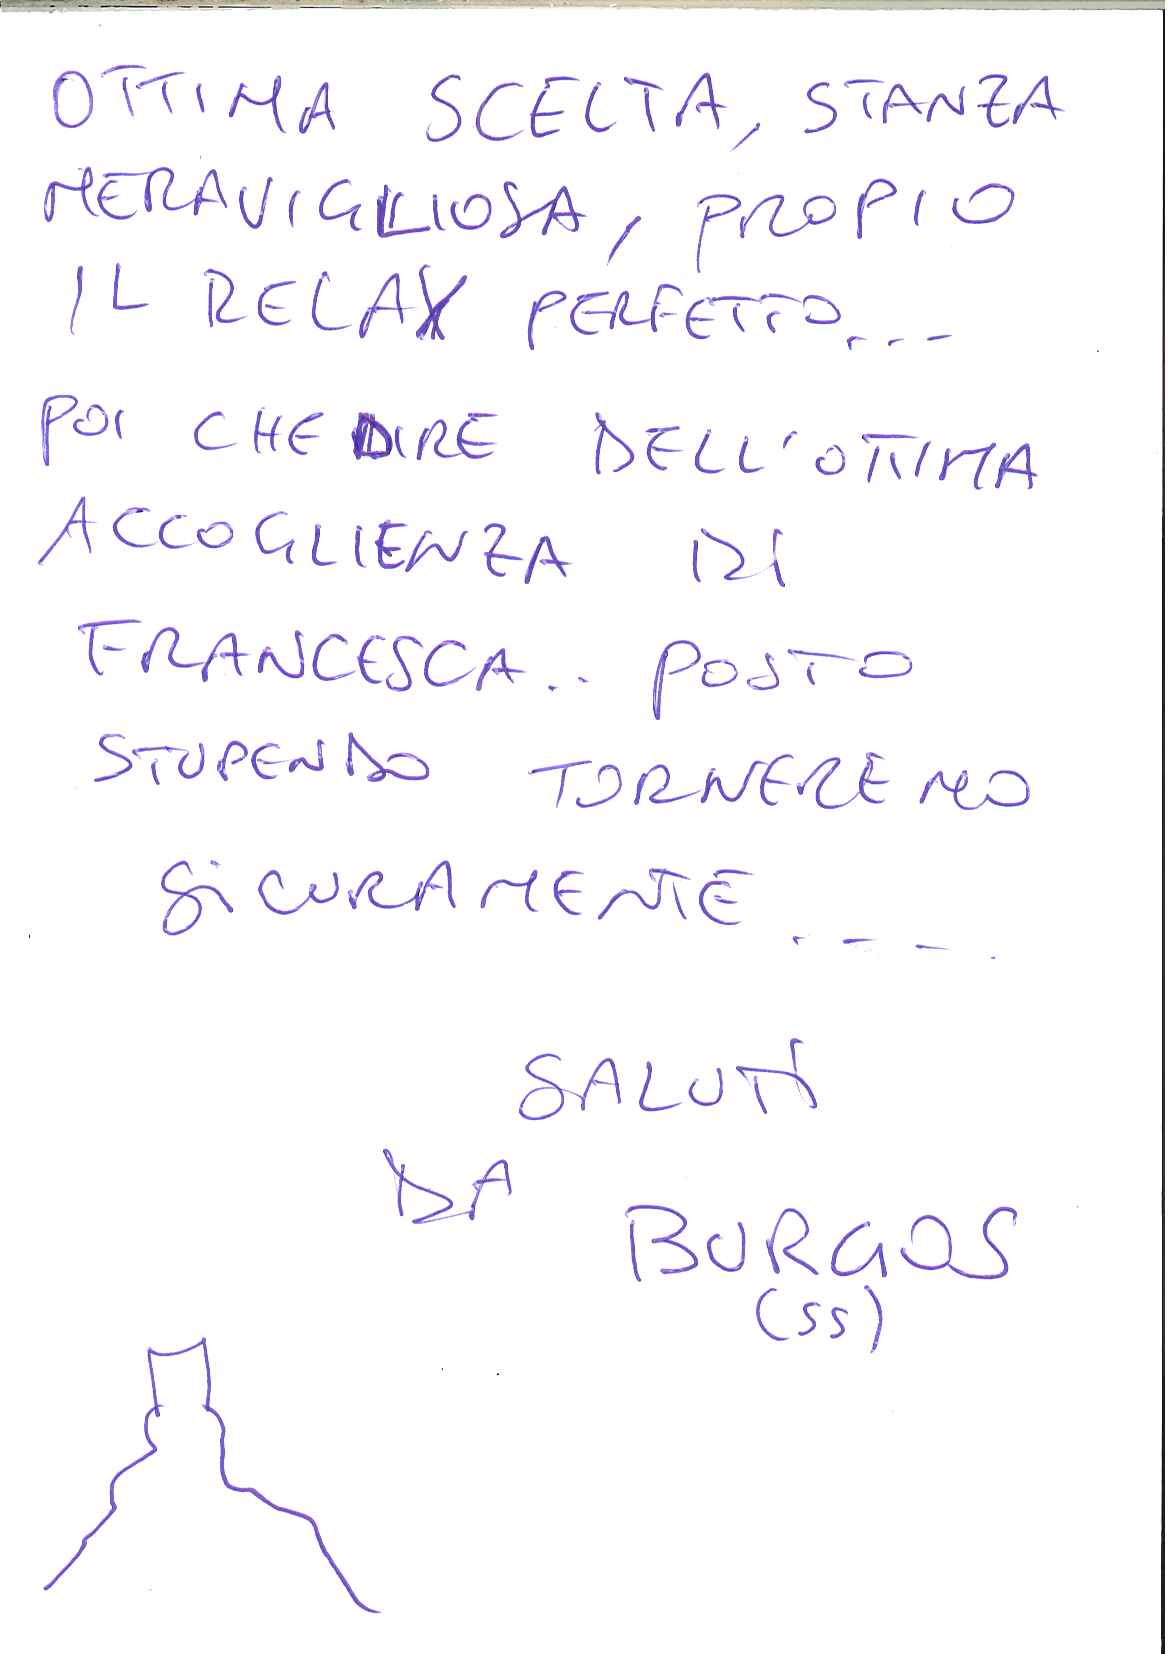 OTTIMA SCELTA, STANZA
MERAVIGLIOSA, PROPIO
IL RELAX PERFETTO...
POI CHE DIRE DELL'OTTIMA
ACCOGLIENZA DI
FRANCESCA.. POSTO
STUPENDO TORNEREMO
SICURAMENTE....
SALUTI
DA
BURGOS
(SS)